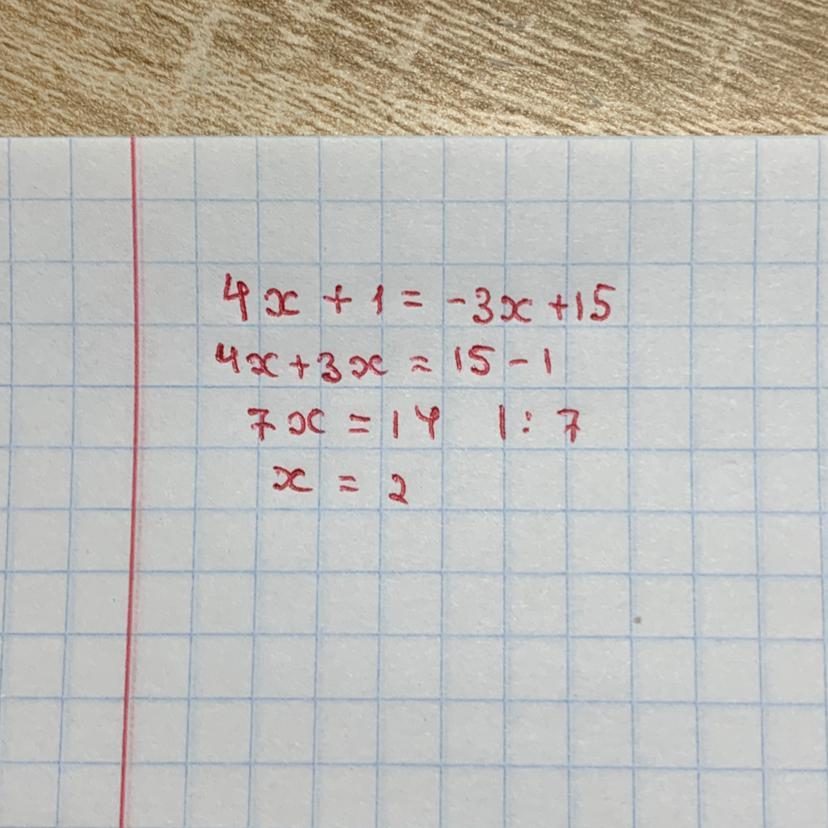 4x + 1 = -3x +15
4x+3x = 15 - 1
7x = 14 |: 7
x = 2